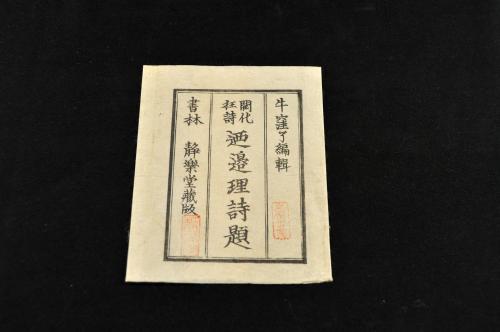 牛窪了編輯
開化
狂詩
迺邉理詩題
書林 靜樂堂藏版